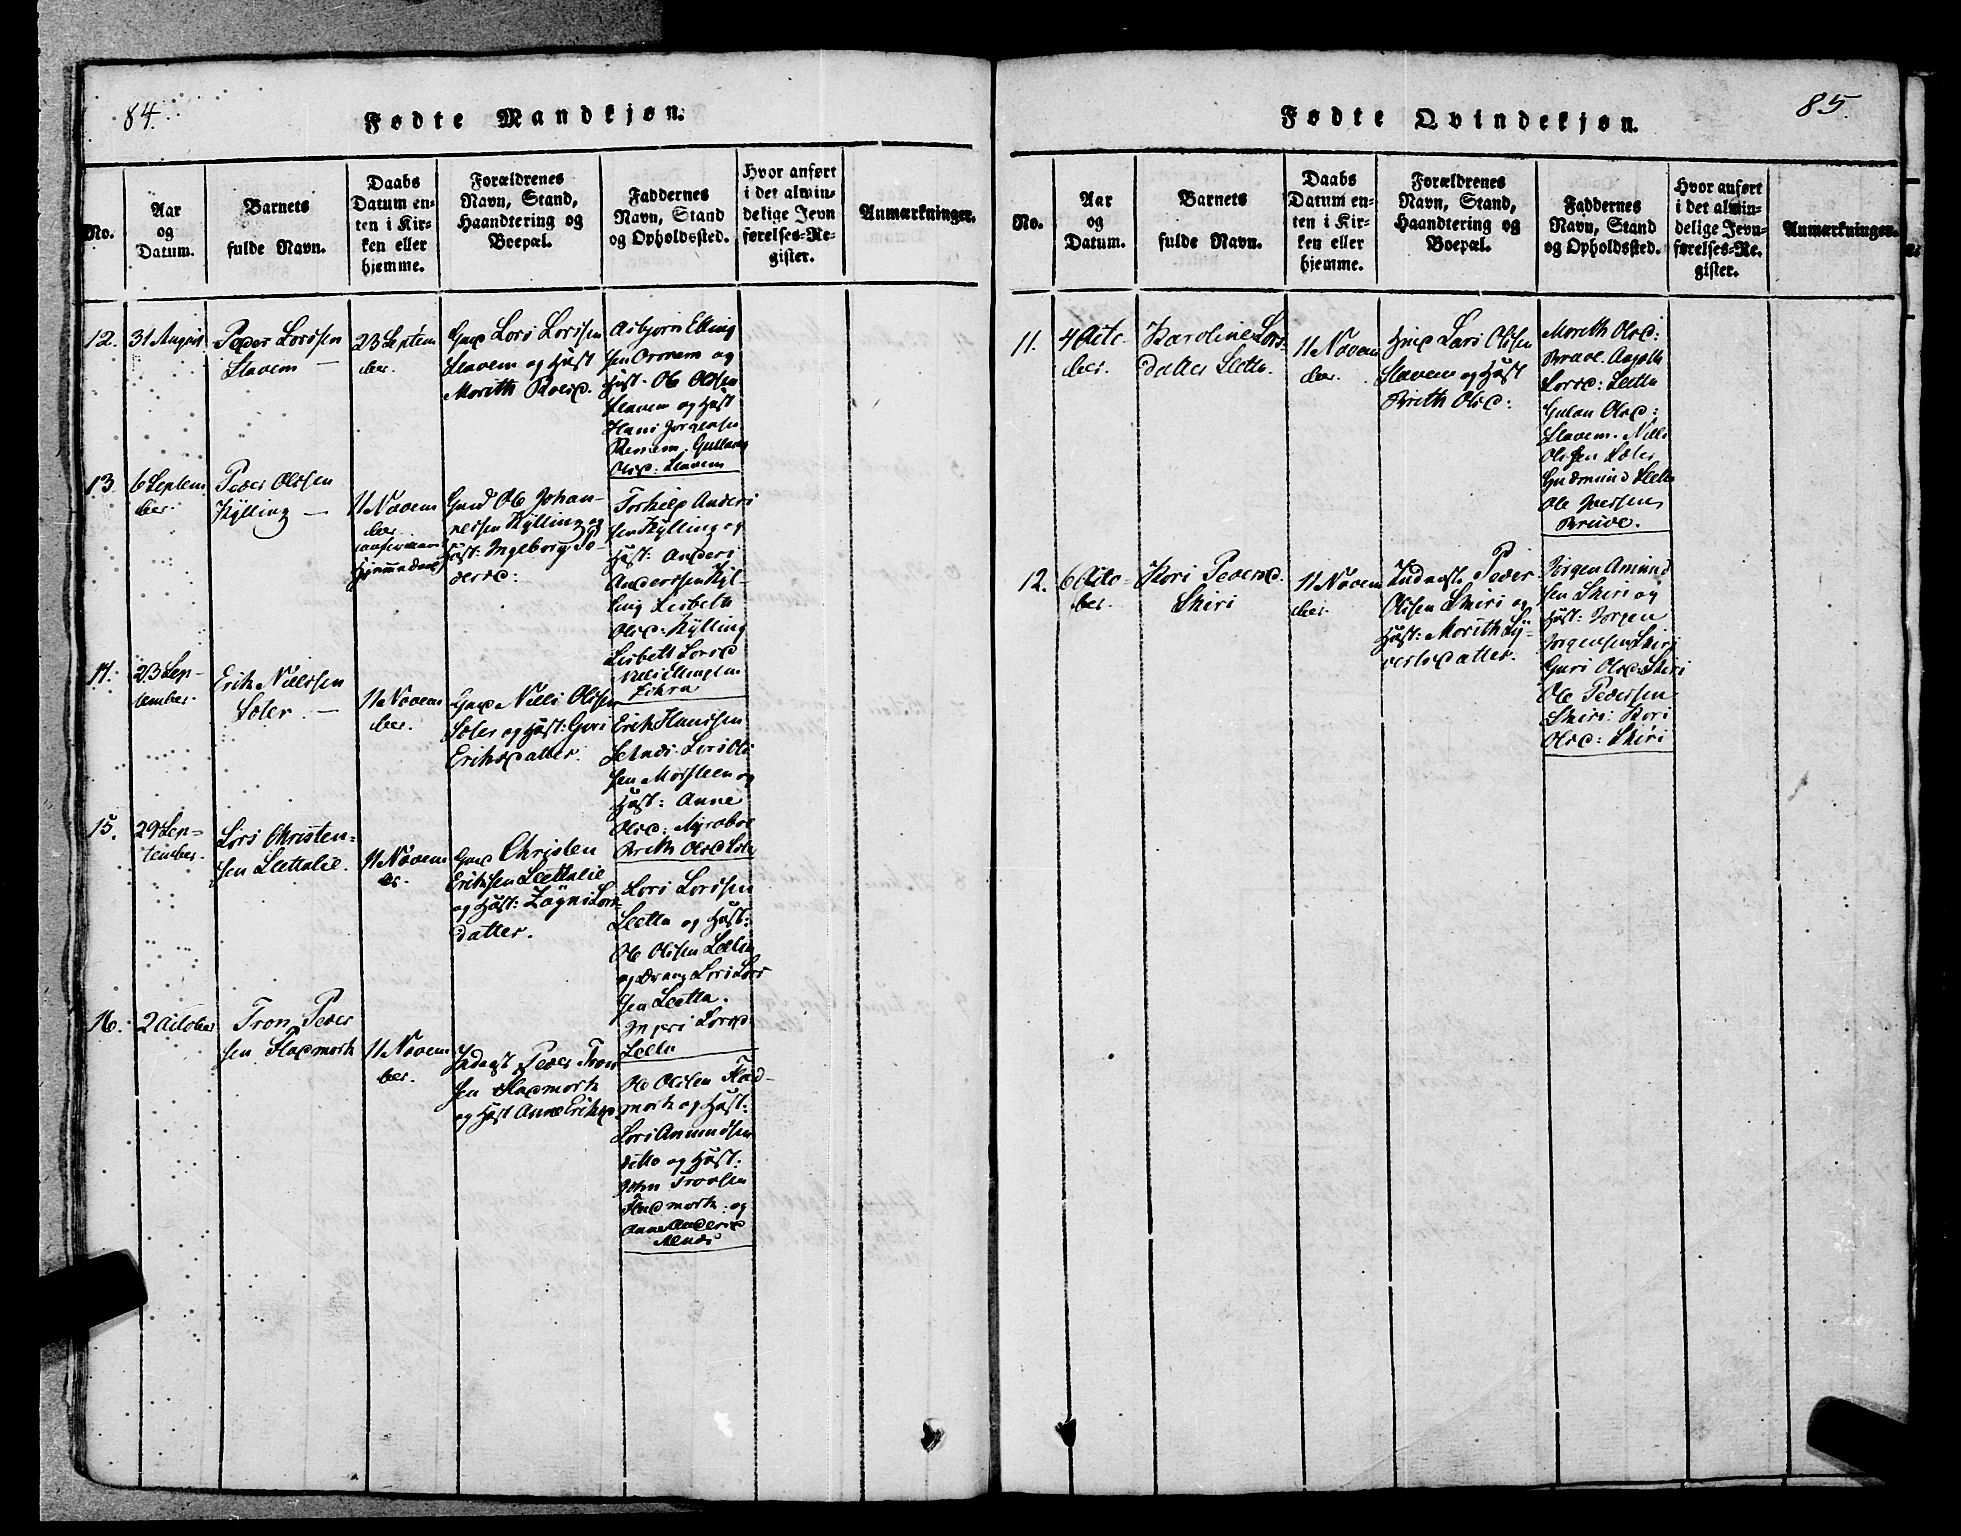 84.
Fødte Mandkjøn.
No.
Aar
og
Datum.
Barnets
fulde Navn.
Daabs
Datum en-
ten i Kir-
ken eller
hjemme.
Forældrenes
Navn, Stand,
Haandtering og
Boepæl.
Faddernes
Navn, Stand
og Opholdssted.
Hvor anført
i det almin-
delige Jevn
førelses-Re-
gister.
Anmærkninger.
12.
31 August
Peder Larssen
Slavem —
23 Septem
ber.
Gmd Lars Larssen
Slavem og Hust
Morith
Asbjørn Elling
sen Ormem og
Hust. Ole Olssen
Slavem og Hust
Hans Jørgensen
Olsd: Slavem
13.
6 Septem
ber.
Peder Olssen
Kylling —
11 Novem
ber
Gmd Ole Johan-
nessen Kylling og
Hust: Ingeborg Pe-
dersd:
Torkiel Anders
sen Kylling og
Hust: Anders
Anderssen Kyl-
ling Lisbeth
Olsd: Kylling
Lisbeth Larsd
14.
23 Sep-
tember.
Erik Nielssen
Sæter. —
11 Novem
ber.
Gmd Niels Olssen
Sæter og Hust: Guri
Eriksdatter.
Erik Hanssen
Lars Ols
sen Morsteen og
Hust: Anne
Olsd:
Brith Olsd
15.
29 Sep-
tember.
Lars Christen-
sen Slettalie.
11 Novem
ber.
Gmd Christen
Erikssen Slettalie
og Hust: Lars-
datter.
Lars Larssen
Sletta og Hust:
Ole Olssen Sletta
og Drang Lars Lars
sen Sletta.
Larsd
Sletta
16.
2 October
Tron Peder
sen Fladmark
11 Novem
ber.
Indrst Peder Tron
sen Fladmark
og Hust Anne Eriksd
Ole Olssen Flad-
mark og Hust:
Lars Amundsen
ditto og Hust:
John
Fladmark og
Anne Andersd

85.
Fødte Qvindekjøn.
No.
Aar
og
Datum.
Barnets
fulde Navn.
Daabs
Datum en-
ten i Kir-
ken eller
hjemme.
Forældrenes
Navn, Stand,
Haandtering og
Boepæl.
Faddernes
Navn, Stand
og Opholdssted.
Hvor anført
i det almin-
delige Jevn-
førelses-Re-
gister.
Anmærkninger.
11.
4 Octo-
ber.
Karoline Lars-
datter Sletta.
11 Novem
ber.
Lars Olssen
Slavem og Hust
Brith Olsd:
Morith Olsd:
Larsd: Sletta
Olsd:
Slavem. Niels
Olssen Sæter
Gudmund Sletta
Ole Iversen
12.
6 Octo-
ber.
Kari Pedersd.
Skiri
11 Novem
ber.
Indrst. Peder
Olssen Skiri og
Hust: Morith Sy-
versdatter.
Jørgen Amund
sen Skiri og
Hust: Jørgen
Jørgensen Skiri
Guri Olsd: Skiri
Ole Pederssen
Skiri: Kari
Olsd: Skiri